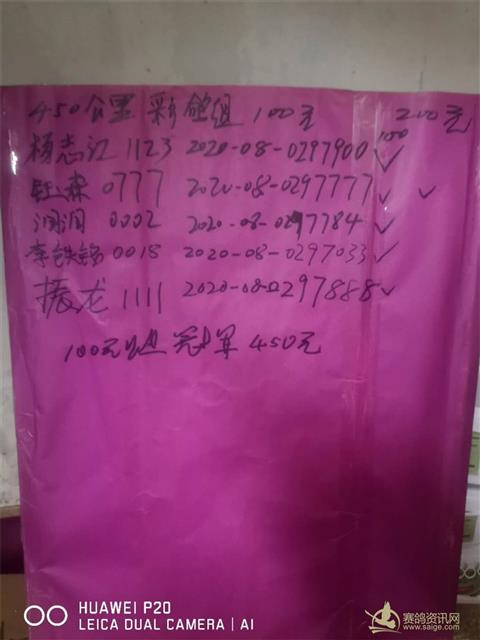 450公里 彩鸽组 100元 200元
100
杨志江 1123 2020-08-0297900 ✓
0777 2020-08-0297777 ✓ ✓
润润 0002 2020-08-0297784 ✓
李铁铭 0018 2020-08-0297033 ✓
振龙 1111 2020-08-0297888 ✓
100元 冠军 450元
HUAWEI P20
LEICA DUAL CAMERA | AI
赛鸽资讯网
www.saige.com